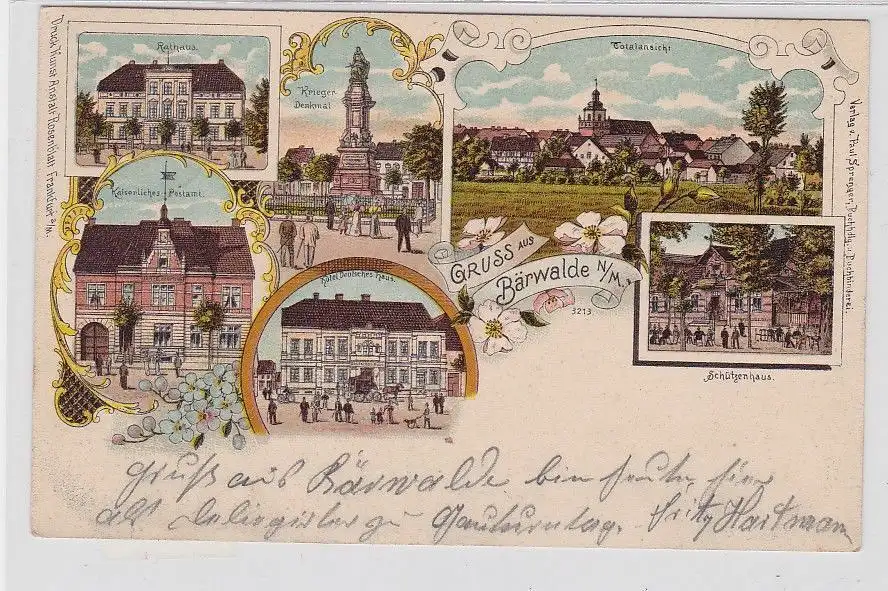 Druck Kunst Anstalt Rosenblatt Frankfurt a/M.
Rathaus.
Krieger
Denkmal
Totalansicht
Kaiserliches-Postamt.
Hotel Deutsches Haus.
GRUSS AUS
Bärwalde N/M.
3213
Schützenhaus.
Verlag v. Paul Sprenger, Buchhdlg. u. Buchbinderei.
Gruß aus Bärwalde bin heute hier
als Delegirter zu Gauturntag. Fritz Hartmann